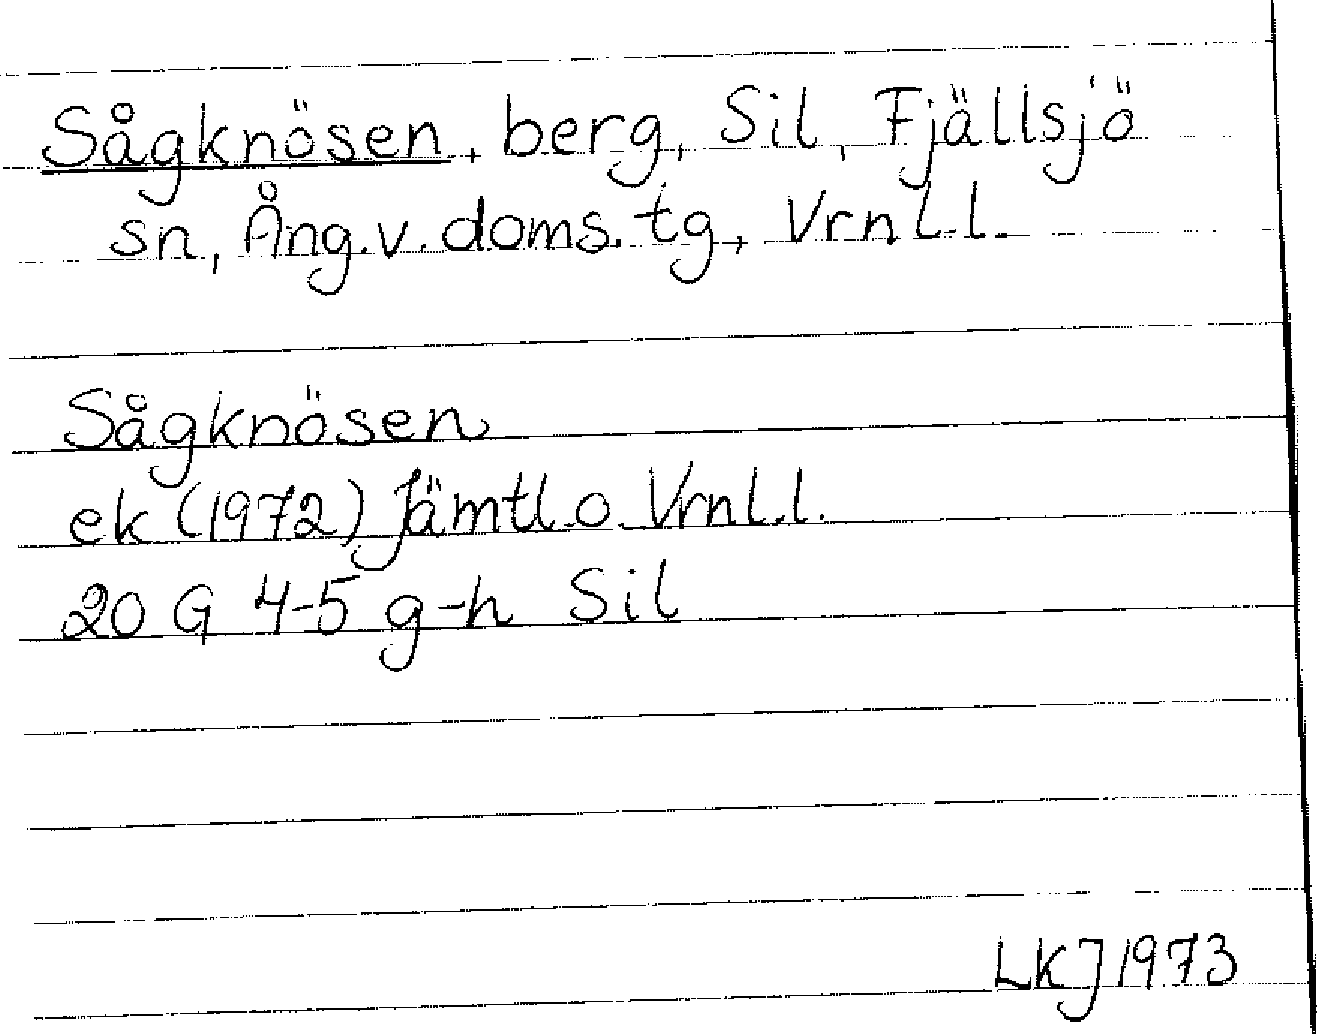 Sågknösen, berg, Sil, Fjällsjö
sn, Ång.v.doms.tg, Vrnl.l.
Sågknösen
ek (1972) Jämtl.o.Vrnl.l.
20 G 4-5 g-h Sil
LKJ 1973